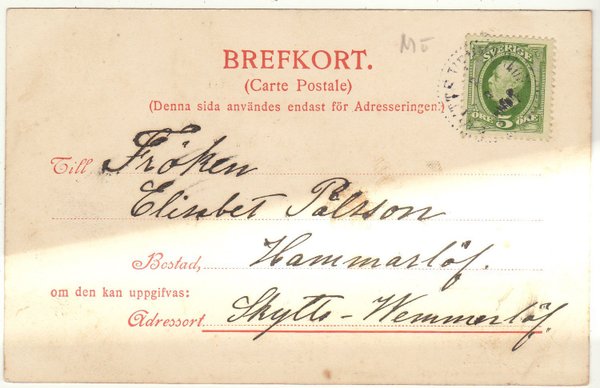 Mö
BREFKORT.
(Carte Postale)
(Denna sida användes endast för Adresseringen.)
SVERIGE
ÖRE 5 ÖRE
Till Fröken
Elisabet Pålsson
Bostad, Hammarlöf.
om den kan uppgifvas:
Adressort Skytts-Wemmerlöf.